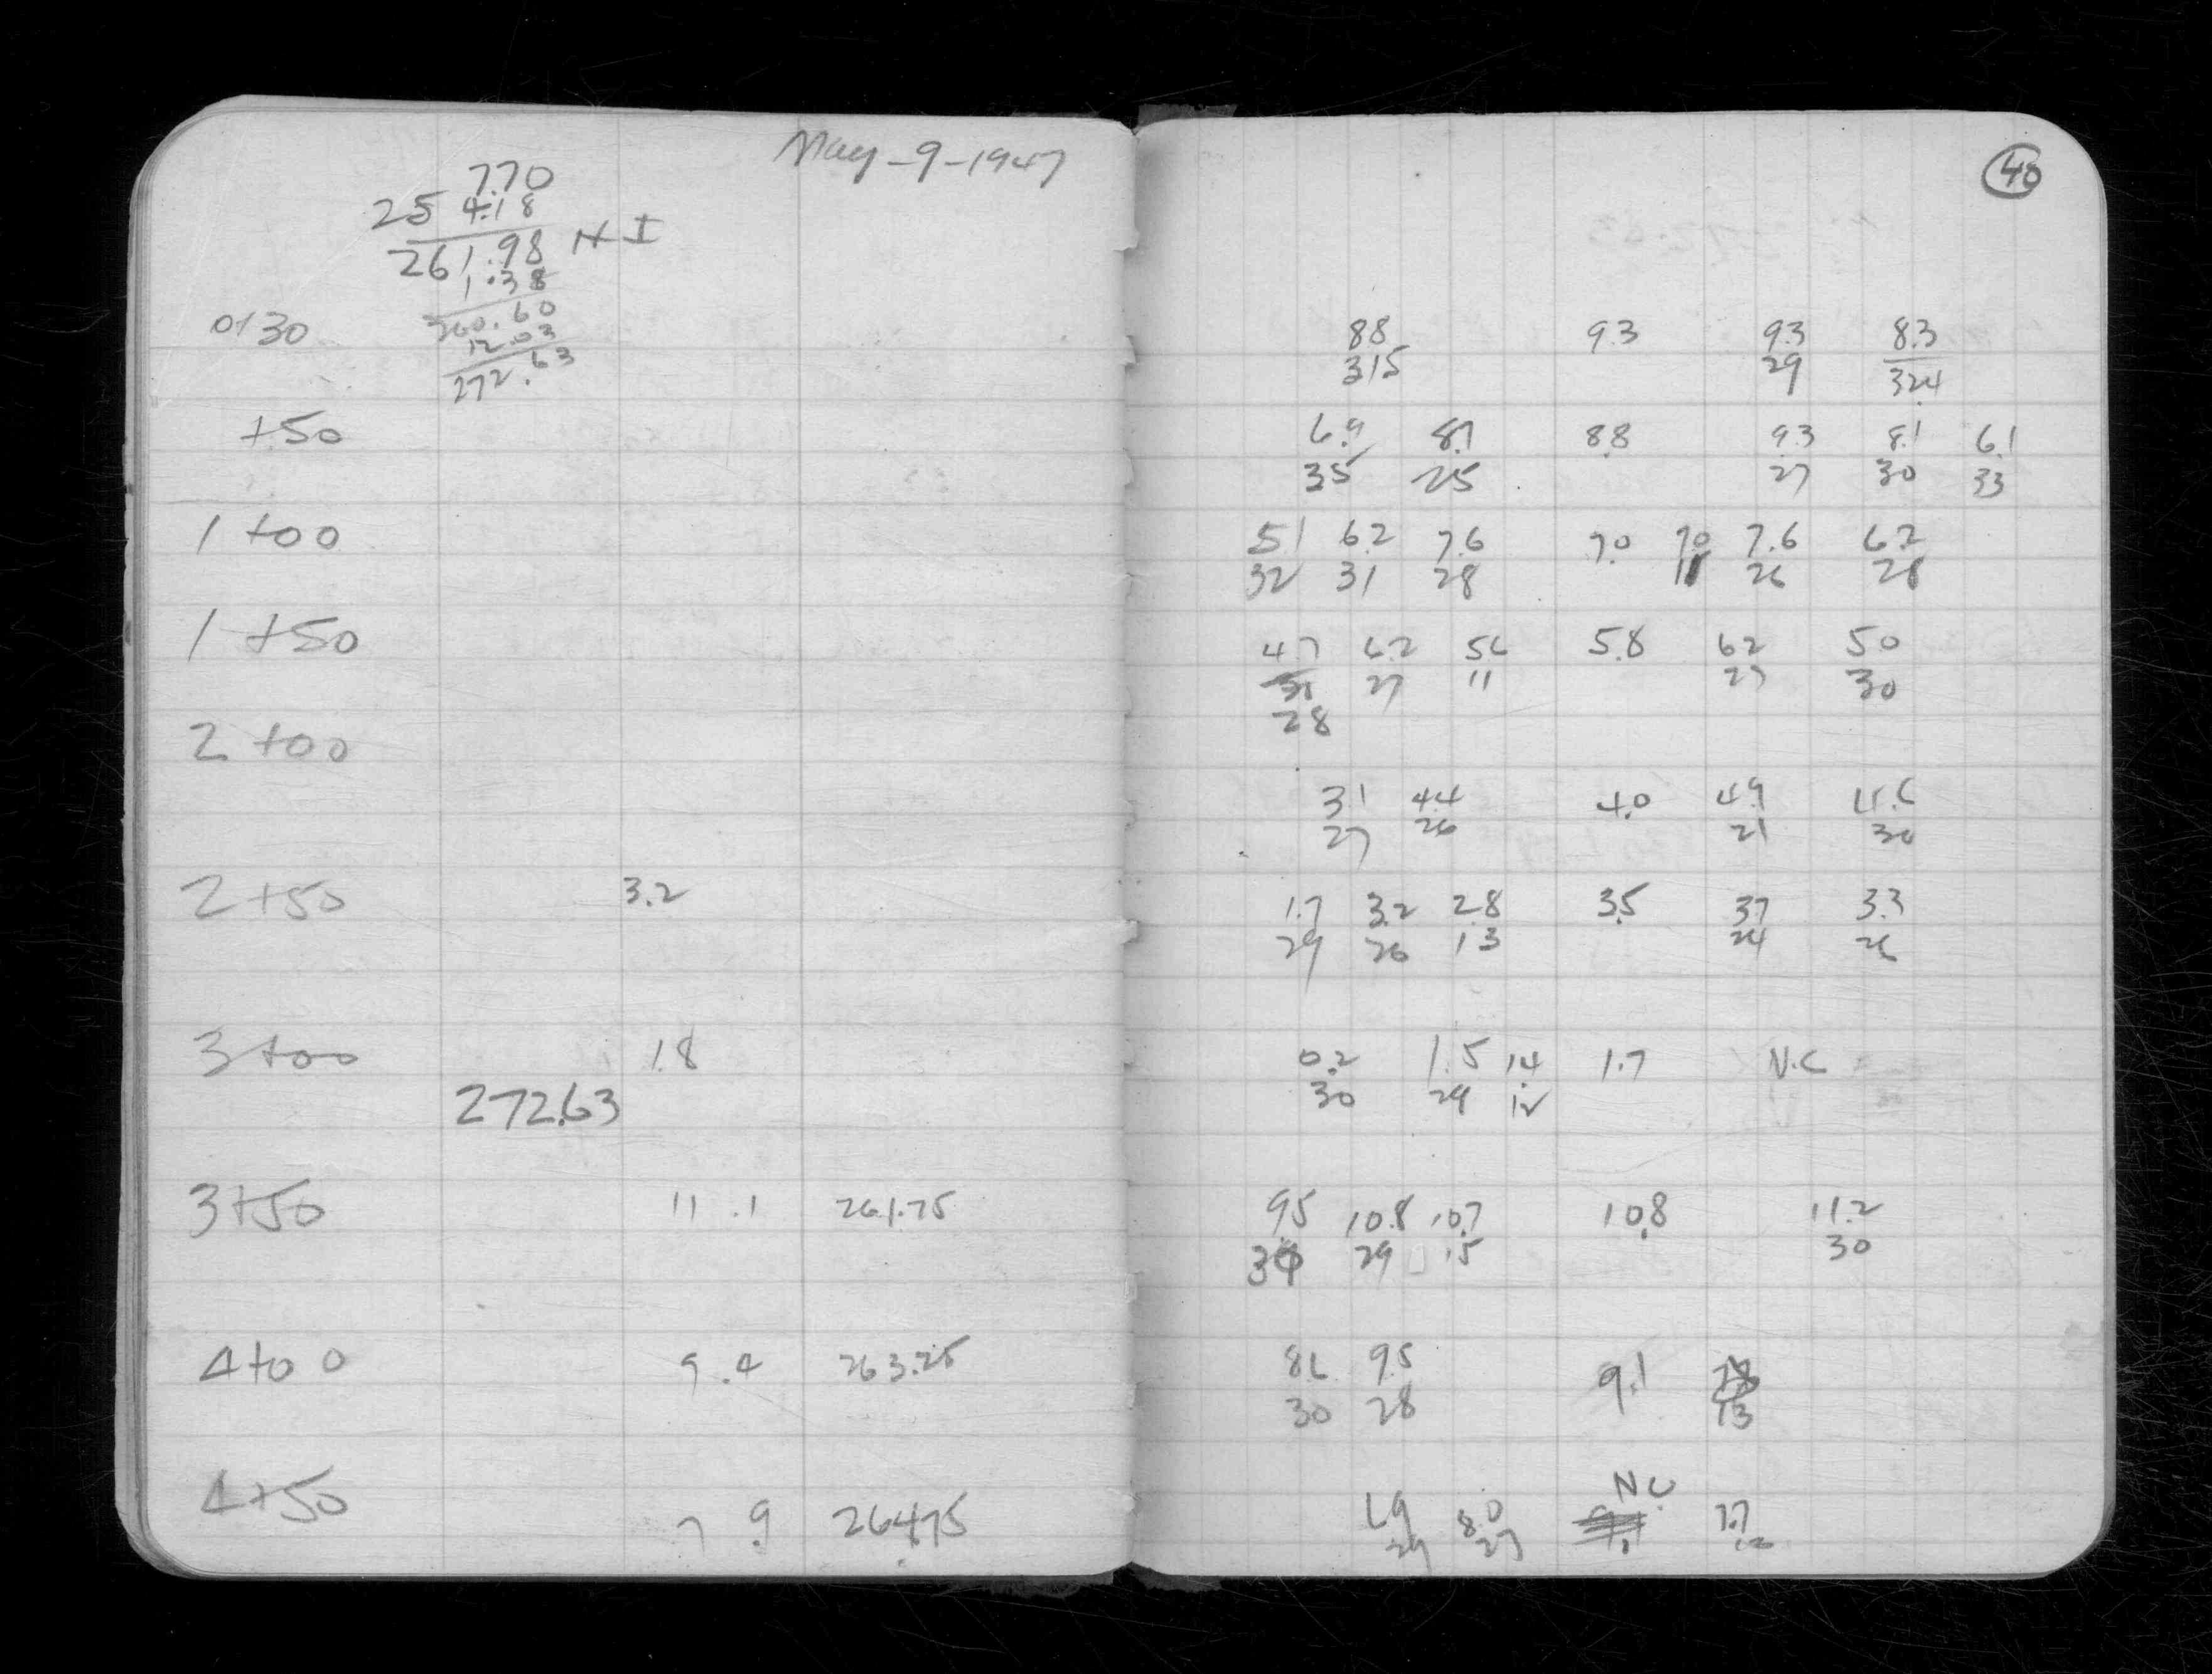 May-9-1947
7.70
254.18
261.98 HI
1.38
260.60
12.03
272.63
0+30
+50
1+00
1+50
2+00
2+50 3.2
3+00 1.8
272.63
3+50 11.1 261.75
4+00 9.4 263.25
4+50 7.9 264.75
40
88 9.3 9.3 8.3
315 29 324
6.9 8.7 8.8 9.3 8.1 6.1
35 25 27 30 33
51 6.2 7.6 7.0 70 7.6 6.2
32 31 28 11 26 28
47 6.2 56 5.8 62 50
31 27 11 27 30
28
31 44 4.0 4.9 4.6
27 26 21 30
1.7 3.2 2.8 3.5 37 3.3
29 26 13 24 26
0.2 1.5 1.4 1.7 N.C
30 29 12
9.5 10.8 10.7 10.8 11.2
30 29 15 30
86 9.5 9.1
30 28 13
N.C.
6.9 8.0 7.7
29 27